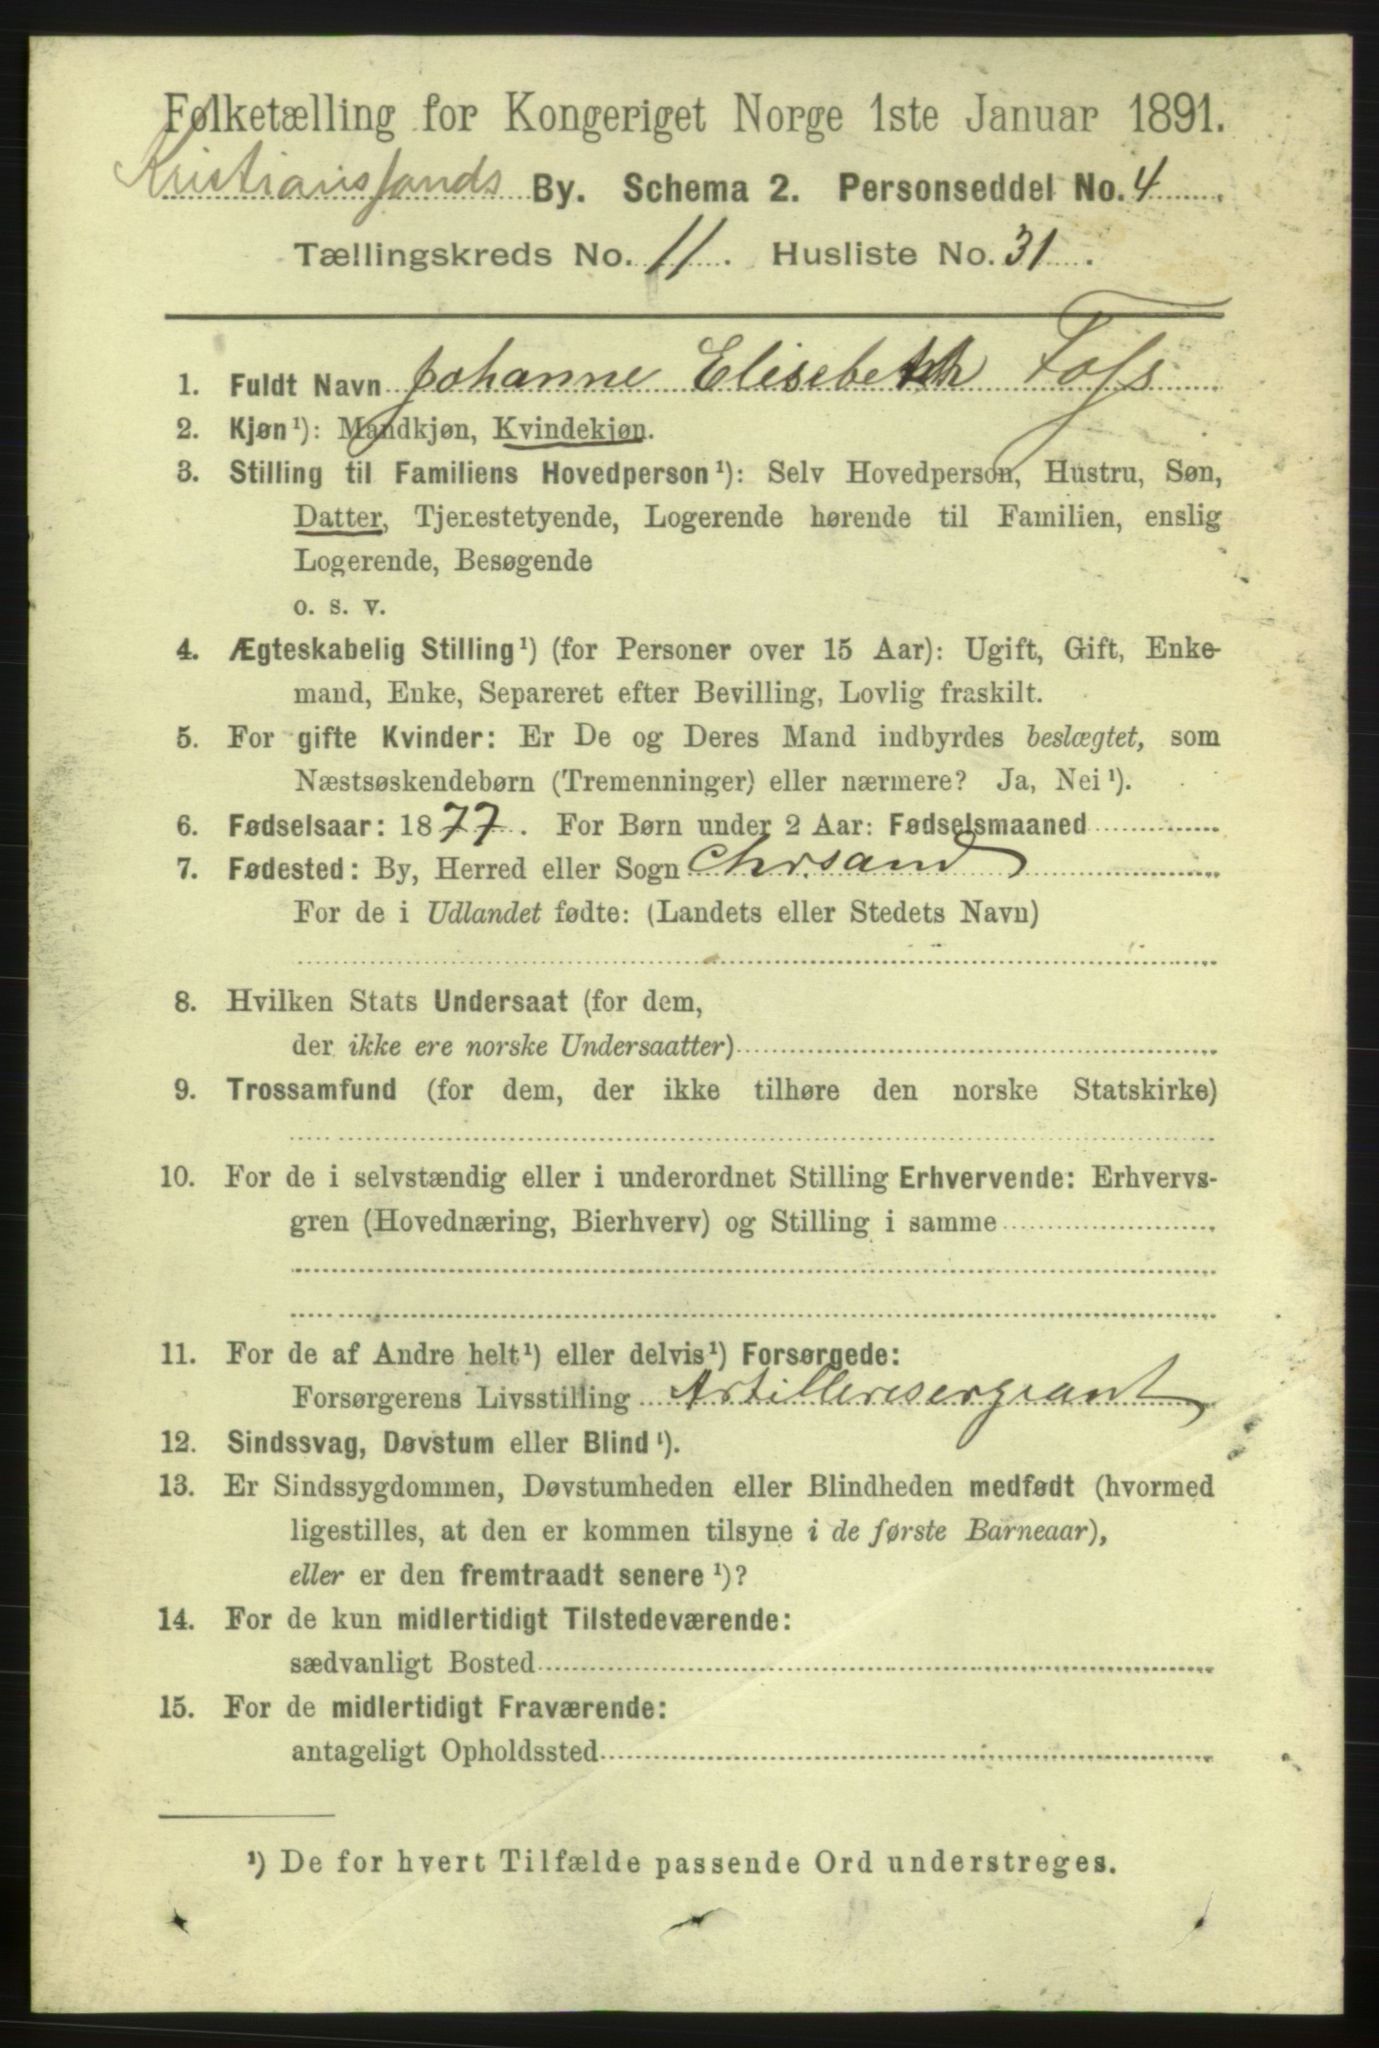 Folketælling for Kongeriget Norge 1ste Januar 1891.
Kristianssands By. Schema 2. Personseddel No. 4.
Tællingskreds No. 11. Husliste No. 31.
1. Fuldt Navn Johanne Elisebeth Foss
2. Kjøn¹): Mandkjøn, Kvindekjøn.
3. Stilling til Familiens Hovedperson¹): Selv Hovedperson, Hustru, Søn,
Datter, Tjenestetyende, Logerende hørende til Familien, enslig
Logerende, Besøgende
o. s. v.
4. Ægteskabelig Stilling¹) (for Personer over 15 Aar): Ugift, Gift, Enke-
mand, Enke, Separeret efter Bevilling, Lovlig fraskilt.
5. For gifte Kvinder: Er De og Deres Mand indbyrdes beslægtet, som
Næstsøskendebørn (Tremenninger) eller nærmere? Ja, Nei¹).
6. Fødselsaar: 1877. For Børn under 2 Aar: Fødselsmaaned
7. Fødested: By, Herred eller Sogn Chr.sand
For de i Udlandet fødte: (Landets eller Stedets Navn)
8. Hvilken Stats Undersaat (for dem,
der ikke ere norske Undersaatter)
9. Trossamfund (for dem, der ikke tilhøre den norske Statskirke)
10. For de i selvstændig eller i underordnet Stilling Erhvervende: Erhvervs-
gren (Hovednæring, Bierhverv) og Stilling i samme
11. For de af Andre helt¹) eller delvis¹) Forsørgede:
Forsørgerens Livsstilling Artillerisergeant
12. Sindssvag, Døvstum eller Blind¹).
13. Er Sindssygdommen, Døvstumheden eller Blindheden medfødt (hvormed
ligestilles, at den er kommen tilsyne i de første Barneaar),
eller er den fremtraadt senere¹)?
14. For de kun midlertidigt Tilstedeværende:
sædvanligt Bosted
15. For de midlertidigt Fraværende:
antageligt Opholdssted
¹) De for hvert Tilfælde passende Ord understreges.